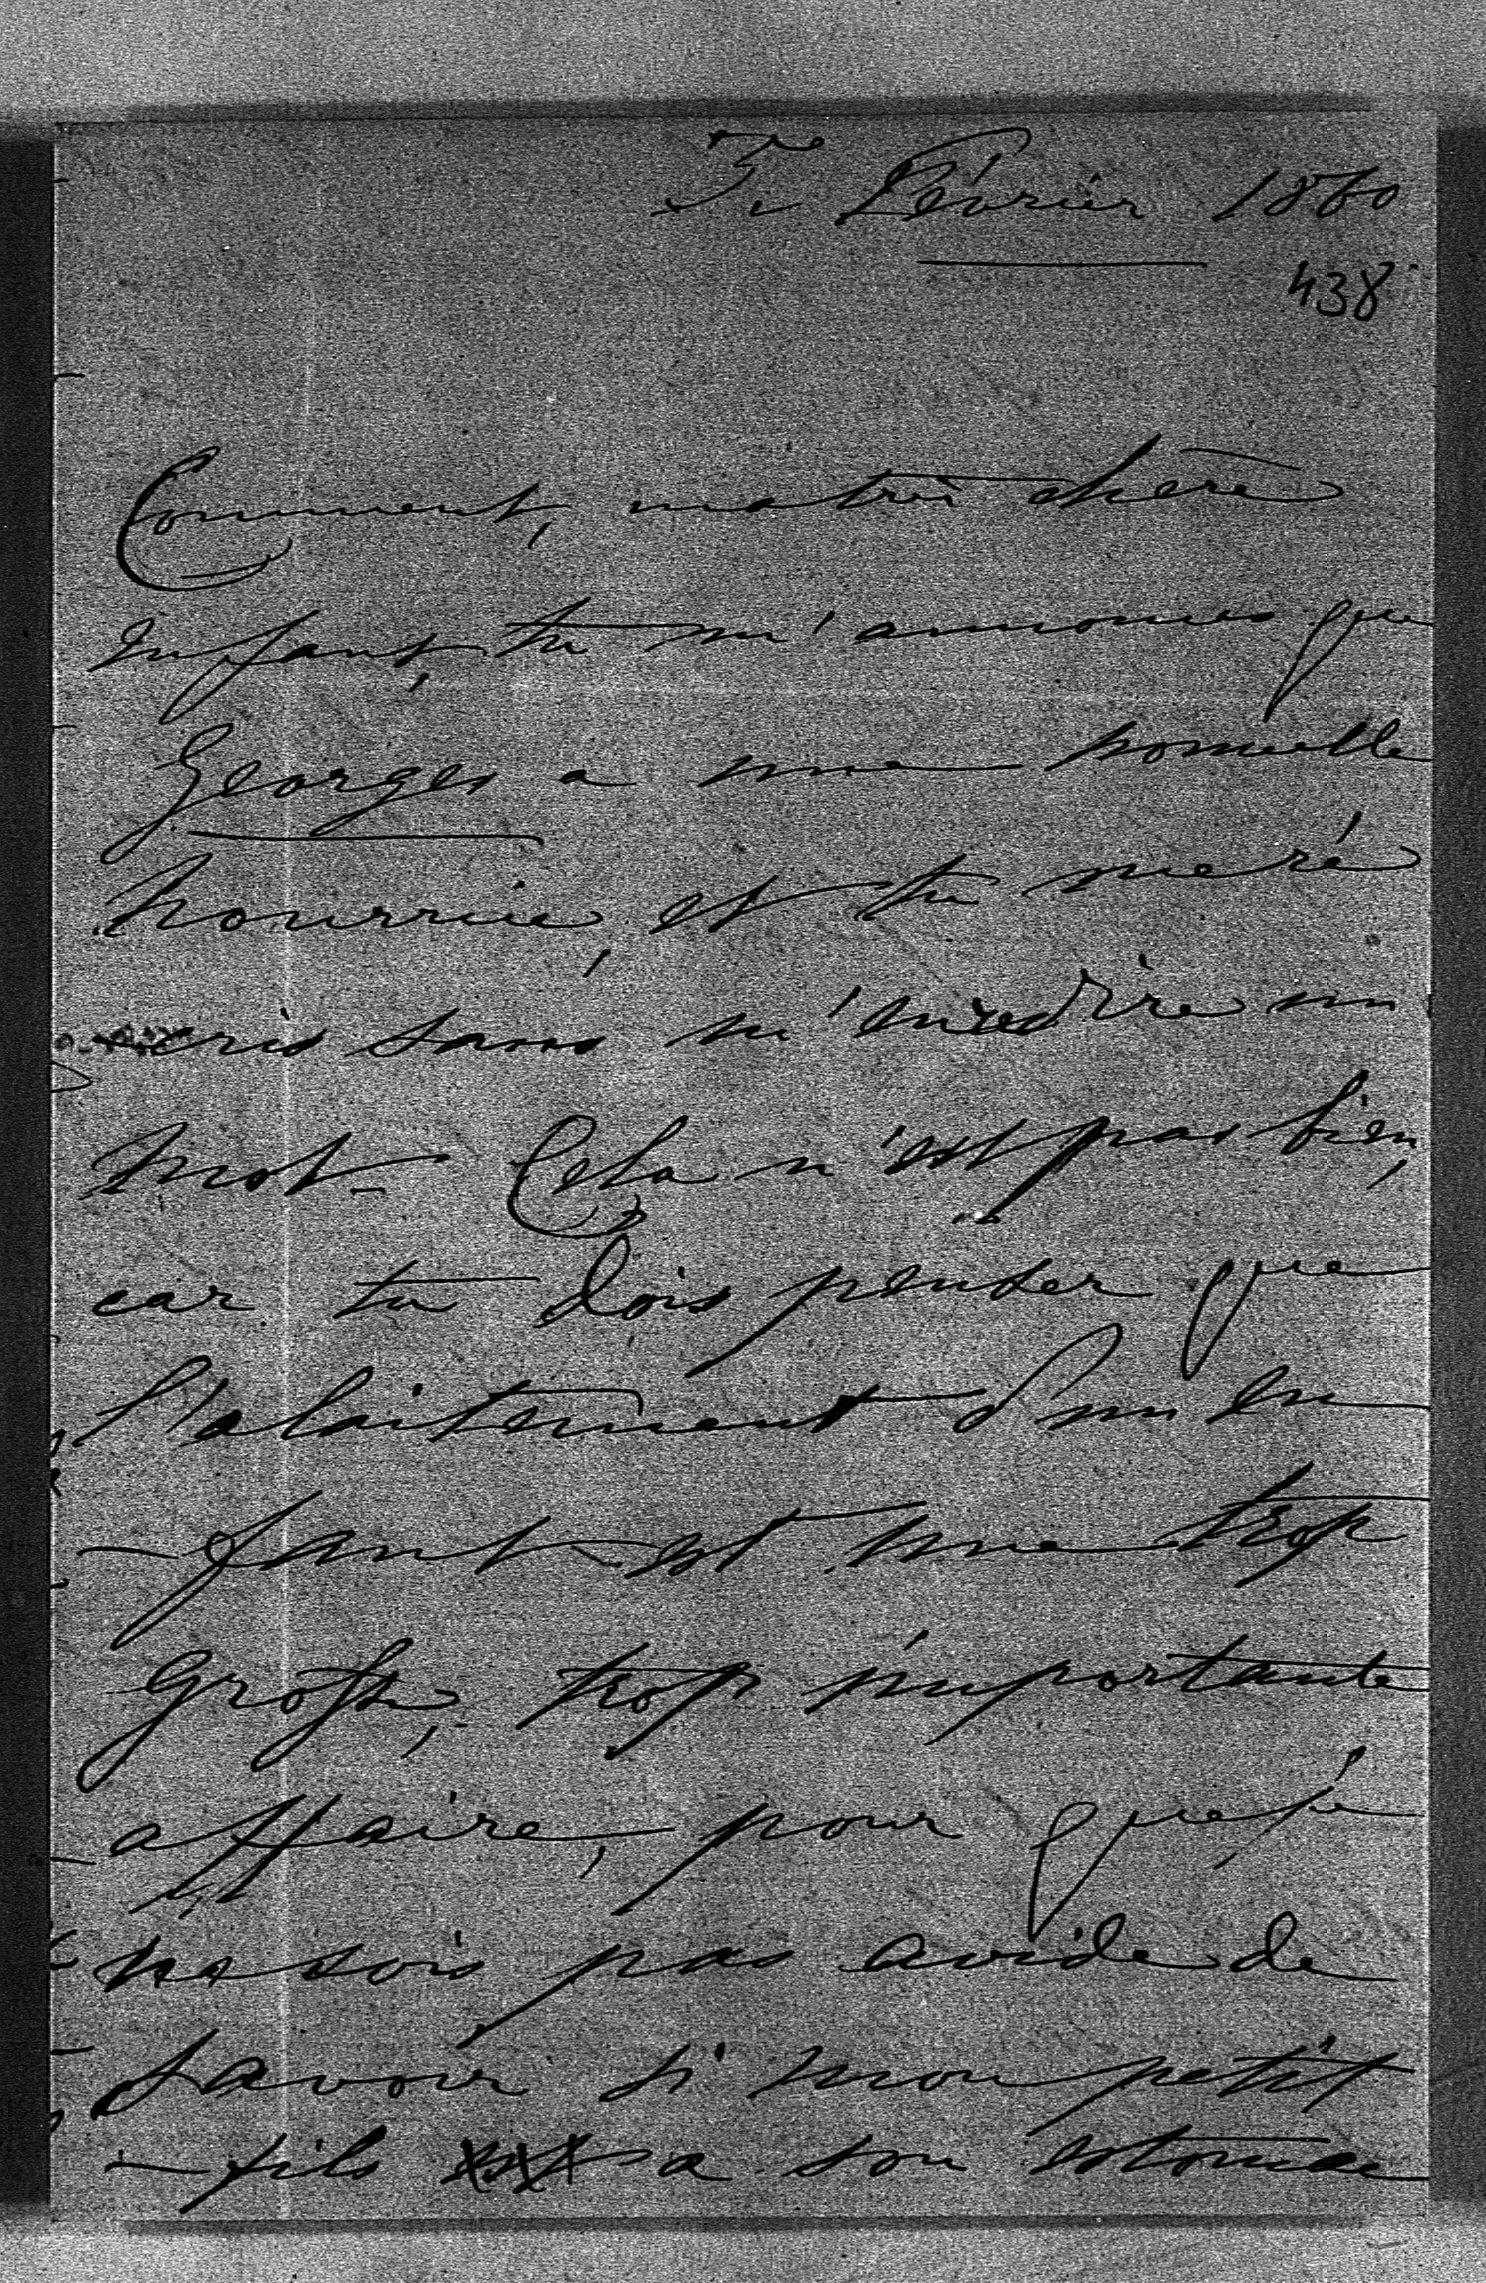 Février 1860
438
Comment, ma très chère
Enfant, tu m'annonces que
Georges a une nouvelle
nourrice, et tu me ré
cris sans m'en redire un
mot. Cela n'est pas bien,
car tu dois penser que
l'alaitement d'un en
-fant est une trop
grosse, trop importante
affaire, pour que je
ne sois pas avide de
savoir si mon petit
-fils a son estomac